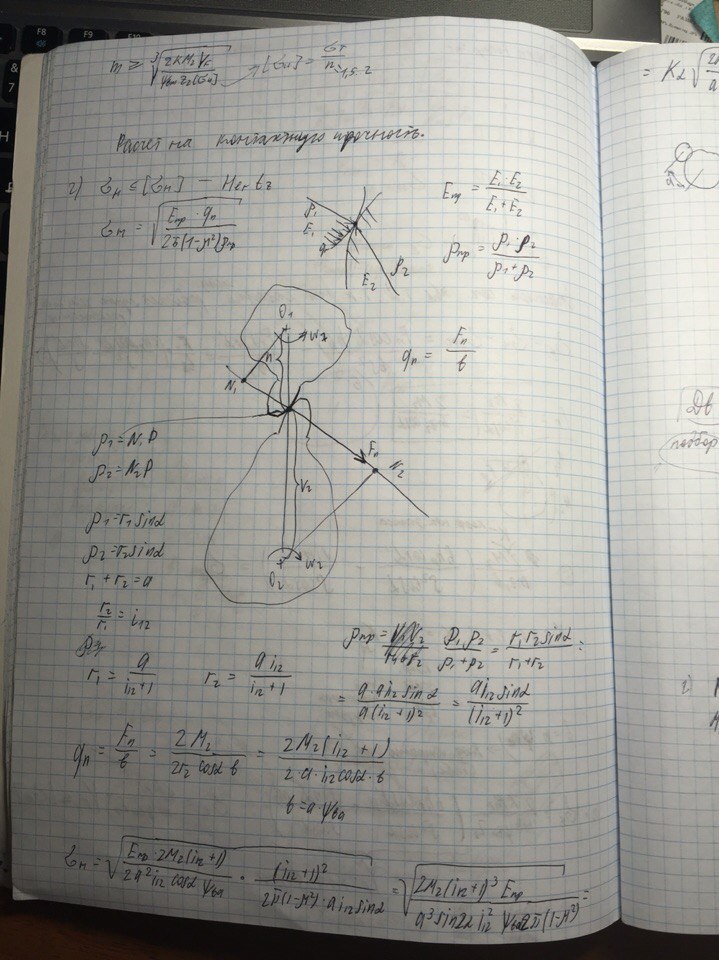 m ≥ ∛(2KM₂Y_F / ψ_bm z₂[σ_u]) → [σ_u] = σ_T / n = 1,5..2
Расчет на контактную прочность.
2) σ_н ≤ [σ_н] — Hertz
σ_H = √(E_пр · q_n / 2π(1-μ²)ρ_пр)
ρ₁
E₁
E₂
ρ₂
E_пр = E₁·E₂ / E₁+E₂
ρ_пр = ρ₁·ρ₂ / ρ₁+ρ₂
q_n = F_n / b
O₁
r₁
N₁
F_n
N₂
r₂
O₂
ω₂
ρ₁ = N₁P
ρ₂ = N₂P
ρ₁ = r₁ sinα
ρ₂ = r₂ sinα
r₁ + r₂ = a
r₂ / r₁ = i₁₂
r₁ = a / i₁₂+1    r₂ = a i₁₂ / i₁₂+1
ρ_пр = ρ₁ρ₂ / ρ₁+ρ₂ = r₁r₂ sinα / r₁+r₂ =
= a·a i₁₂ sinα / a(i₁₂+1)² = a i₁₂ sinα / (i₁₂+1)²
q_n = F_n / b = 2M₂ / 2r₂ cosα b = 2M₂(i₁₂+1) / 2·a·i₁₂ cosα·b
b = a ψ_ba
σ_H = √(E_пр·2M₂(i₁₂+1) / 2a² i₁₂ cosα ψ_ba · (i₁₂+1)² / 2π(1-μ²)·a i₁₂ sinα) = √(2M₂(i₁₂+1)³ E_пр / a³ sin2α i₁₂² ψ_ba 2π(1-μ²)) =
F7
F8
F9
F10
= K_α √
Дв